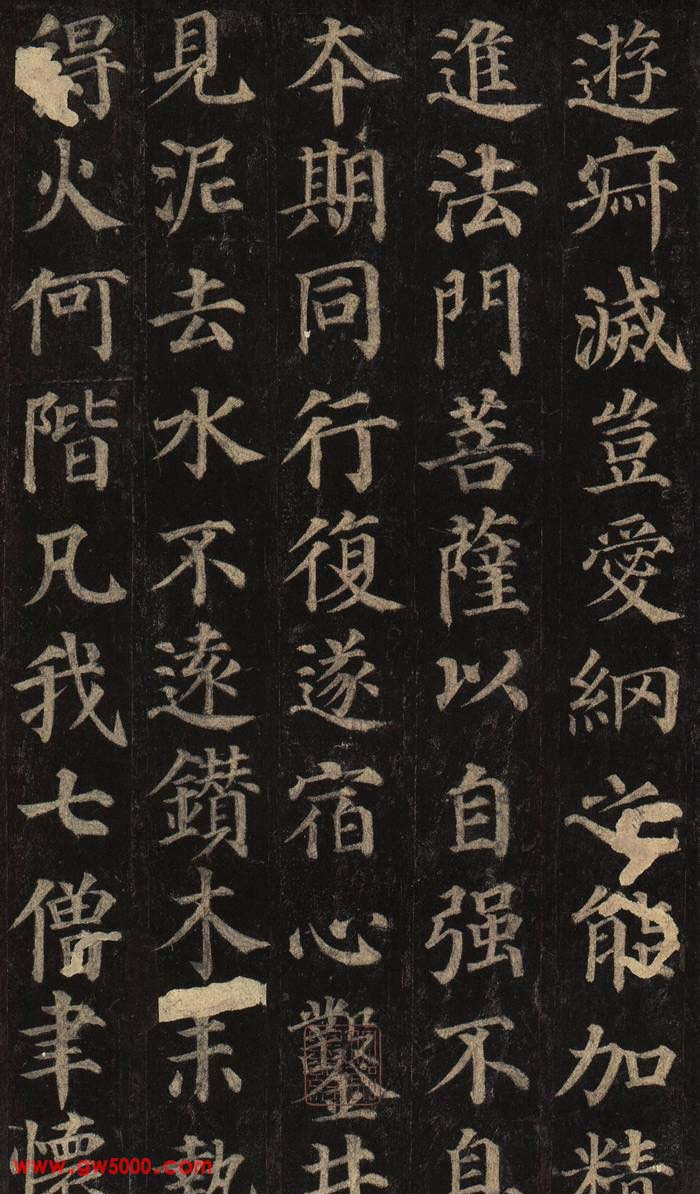 遊寂滅豈愛網之能加精
進法門菩薩以自强不息
本期同行復遂宿心鑿井
見泥去水不遠鑽木未熱
得火何階凡我七僧聿懷
www.gw5000.com